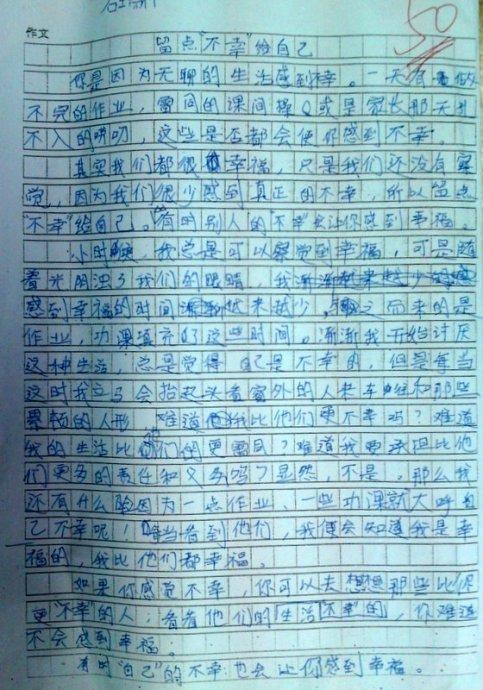 作文
50
留点"不幸"给自己
你是因为无聊的生活感到不幸。一天有做
不完的作业，雷同的课间操，或是家长那无孔
不入的唠叨，这些是否都会使你感到不幸。
其实我们都很幸福，只是我们还没有察
觉，因为我们很少感到真正的不幸，所以留点
"不幸"给自己。有时别人的"不幸"会让你感到幸福。
小时候，我总是可以察觉到幸福，可是随
着光阴我们的眼睛，我
感到幸福的时间越来越少，而来的是
作业，功课填充了这些时间。渐渐我开始讨厌
这种生活，总是觉得自己是不幸的，但是每当
这时我立马会抬起头看窗外的人来车往和那些
累顿的人形，难道我比他们更不幸吗？难道
我的生活比他们的更雷同？难道我要承担比他
们更多的责任和义务吗？显然，不是。那么我
还有什么脸因为一点作业、一些功课就大呼自
己不幸呢，每当看到他们，我便会知道我是幸
福的，我比他们都幸福。
如果你感觉不幸，你可以去想想那些比你
更"不幸"的人，看看他们的生活"不幸"的，你难道
不会感到幸福。
有时"自己"的不幸也会让你感到幸福。